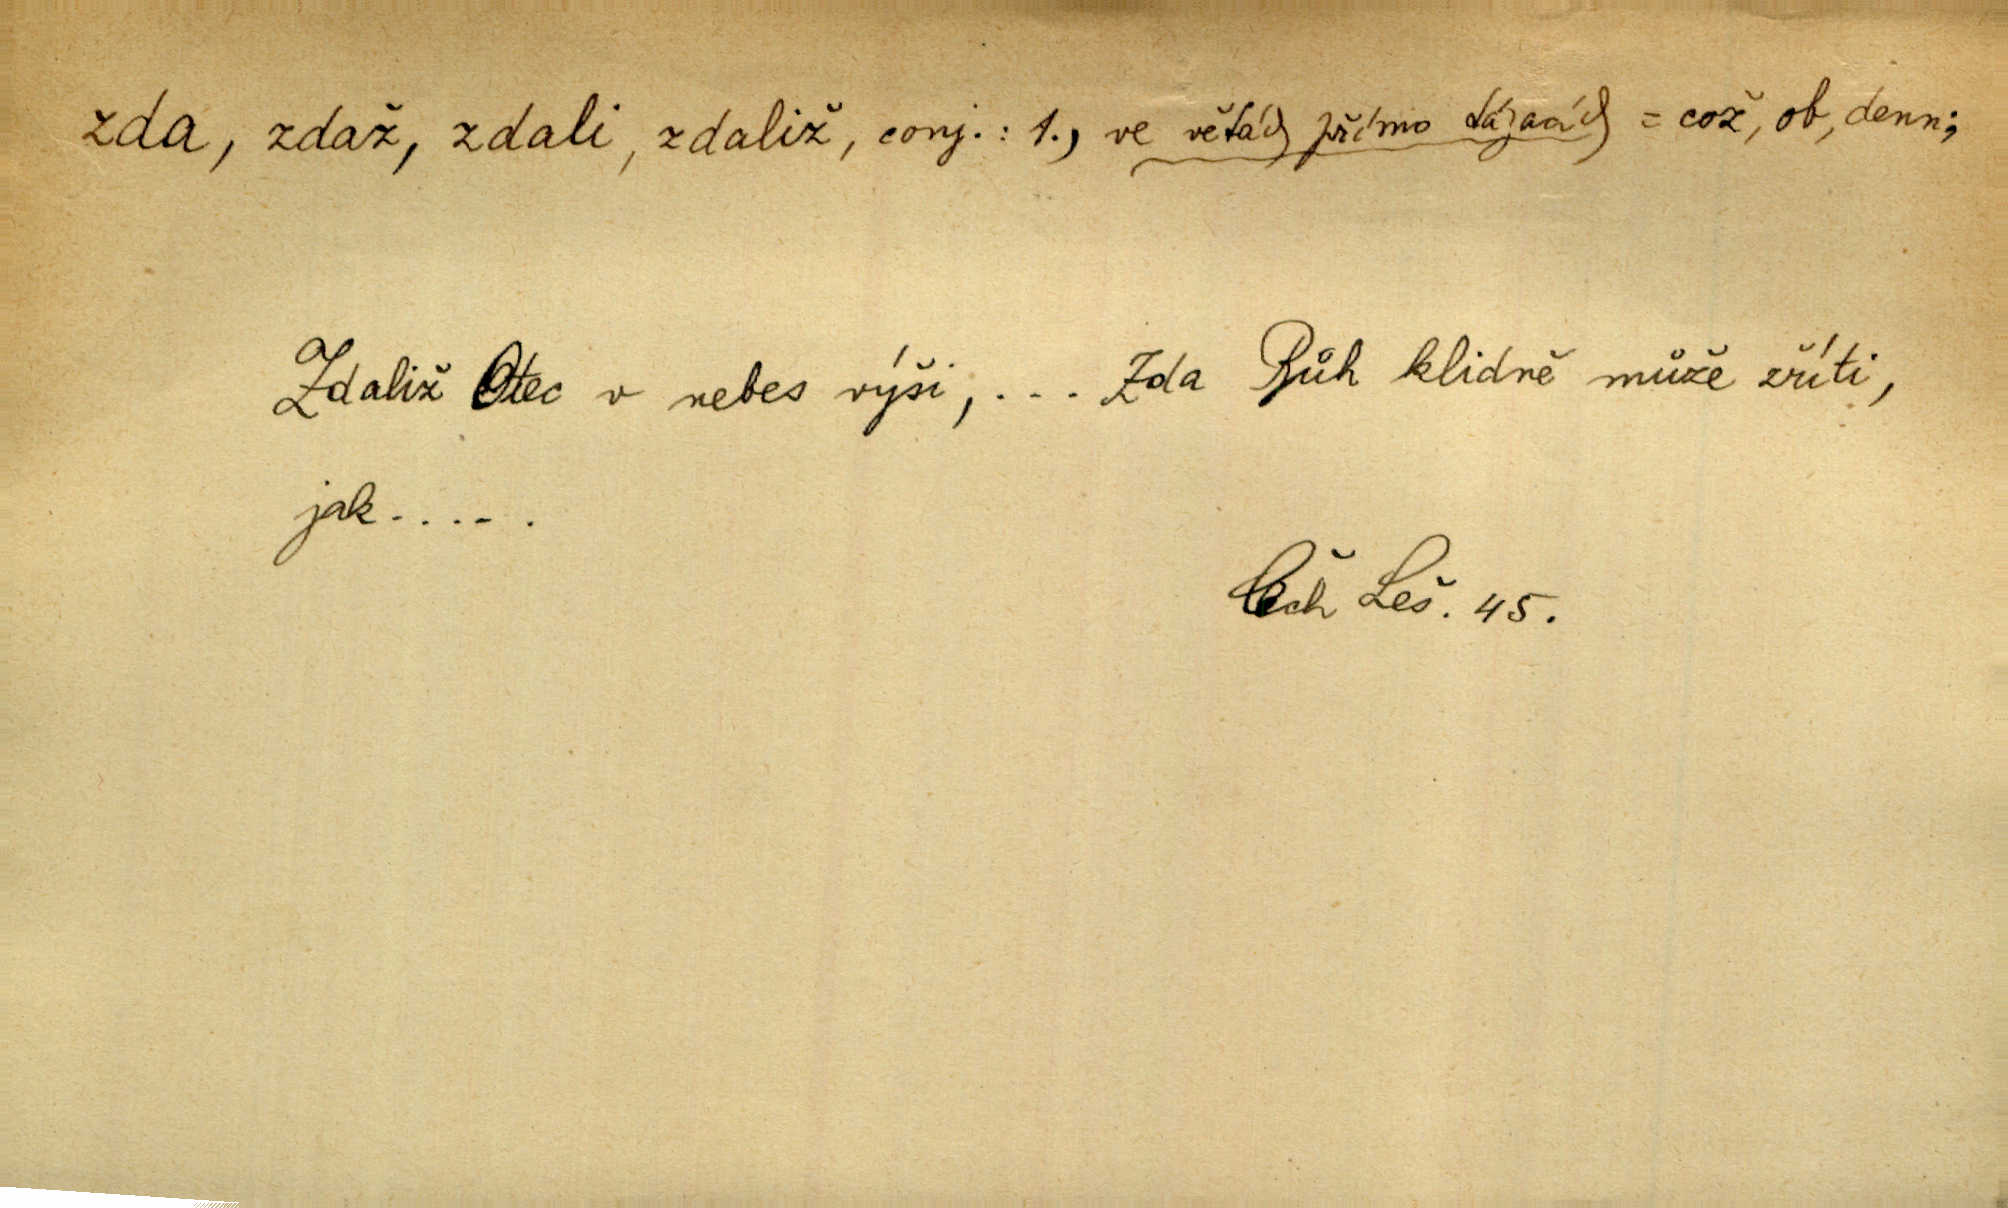 zda, zdaž, zdali, zdaliž, conj.: 1., ve větách přímo tázacích = což, ob, denn;
Zdaliž Otec v nebes výši, ... Zda Bůh klidně může zříti,
jak.....
Čech Leš. 45.